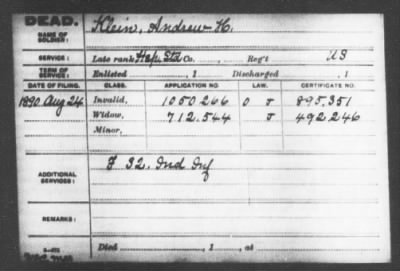 DEAD.
NAME OF SOLDIER: Klein, Andrew H.
SERVICE: Late rank Hosp. Std Co. , Reg't US
TERM OF SERVICE: Enlisted , 1 Discharged , 1
DATE OF FILING. CLASS. APPLICATION NO. LAW. CERTIFICATE NO.
1890 Aug 24 Invalid, 1050266 O J 895,351
Widow, 712.544 J 492246
Minor,
ADDITIONAL SERVICES: F 32. Ind Inf
REMARKS:
Died , 1 , at